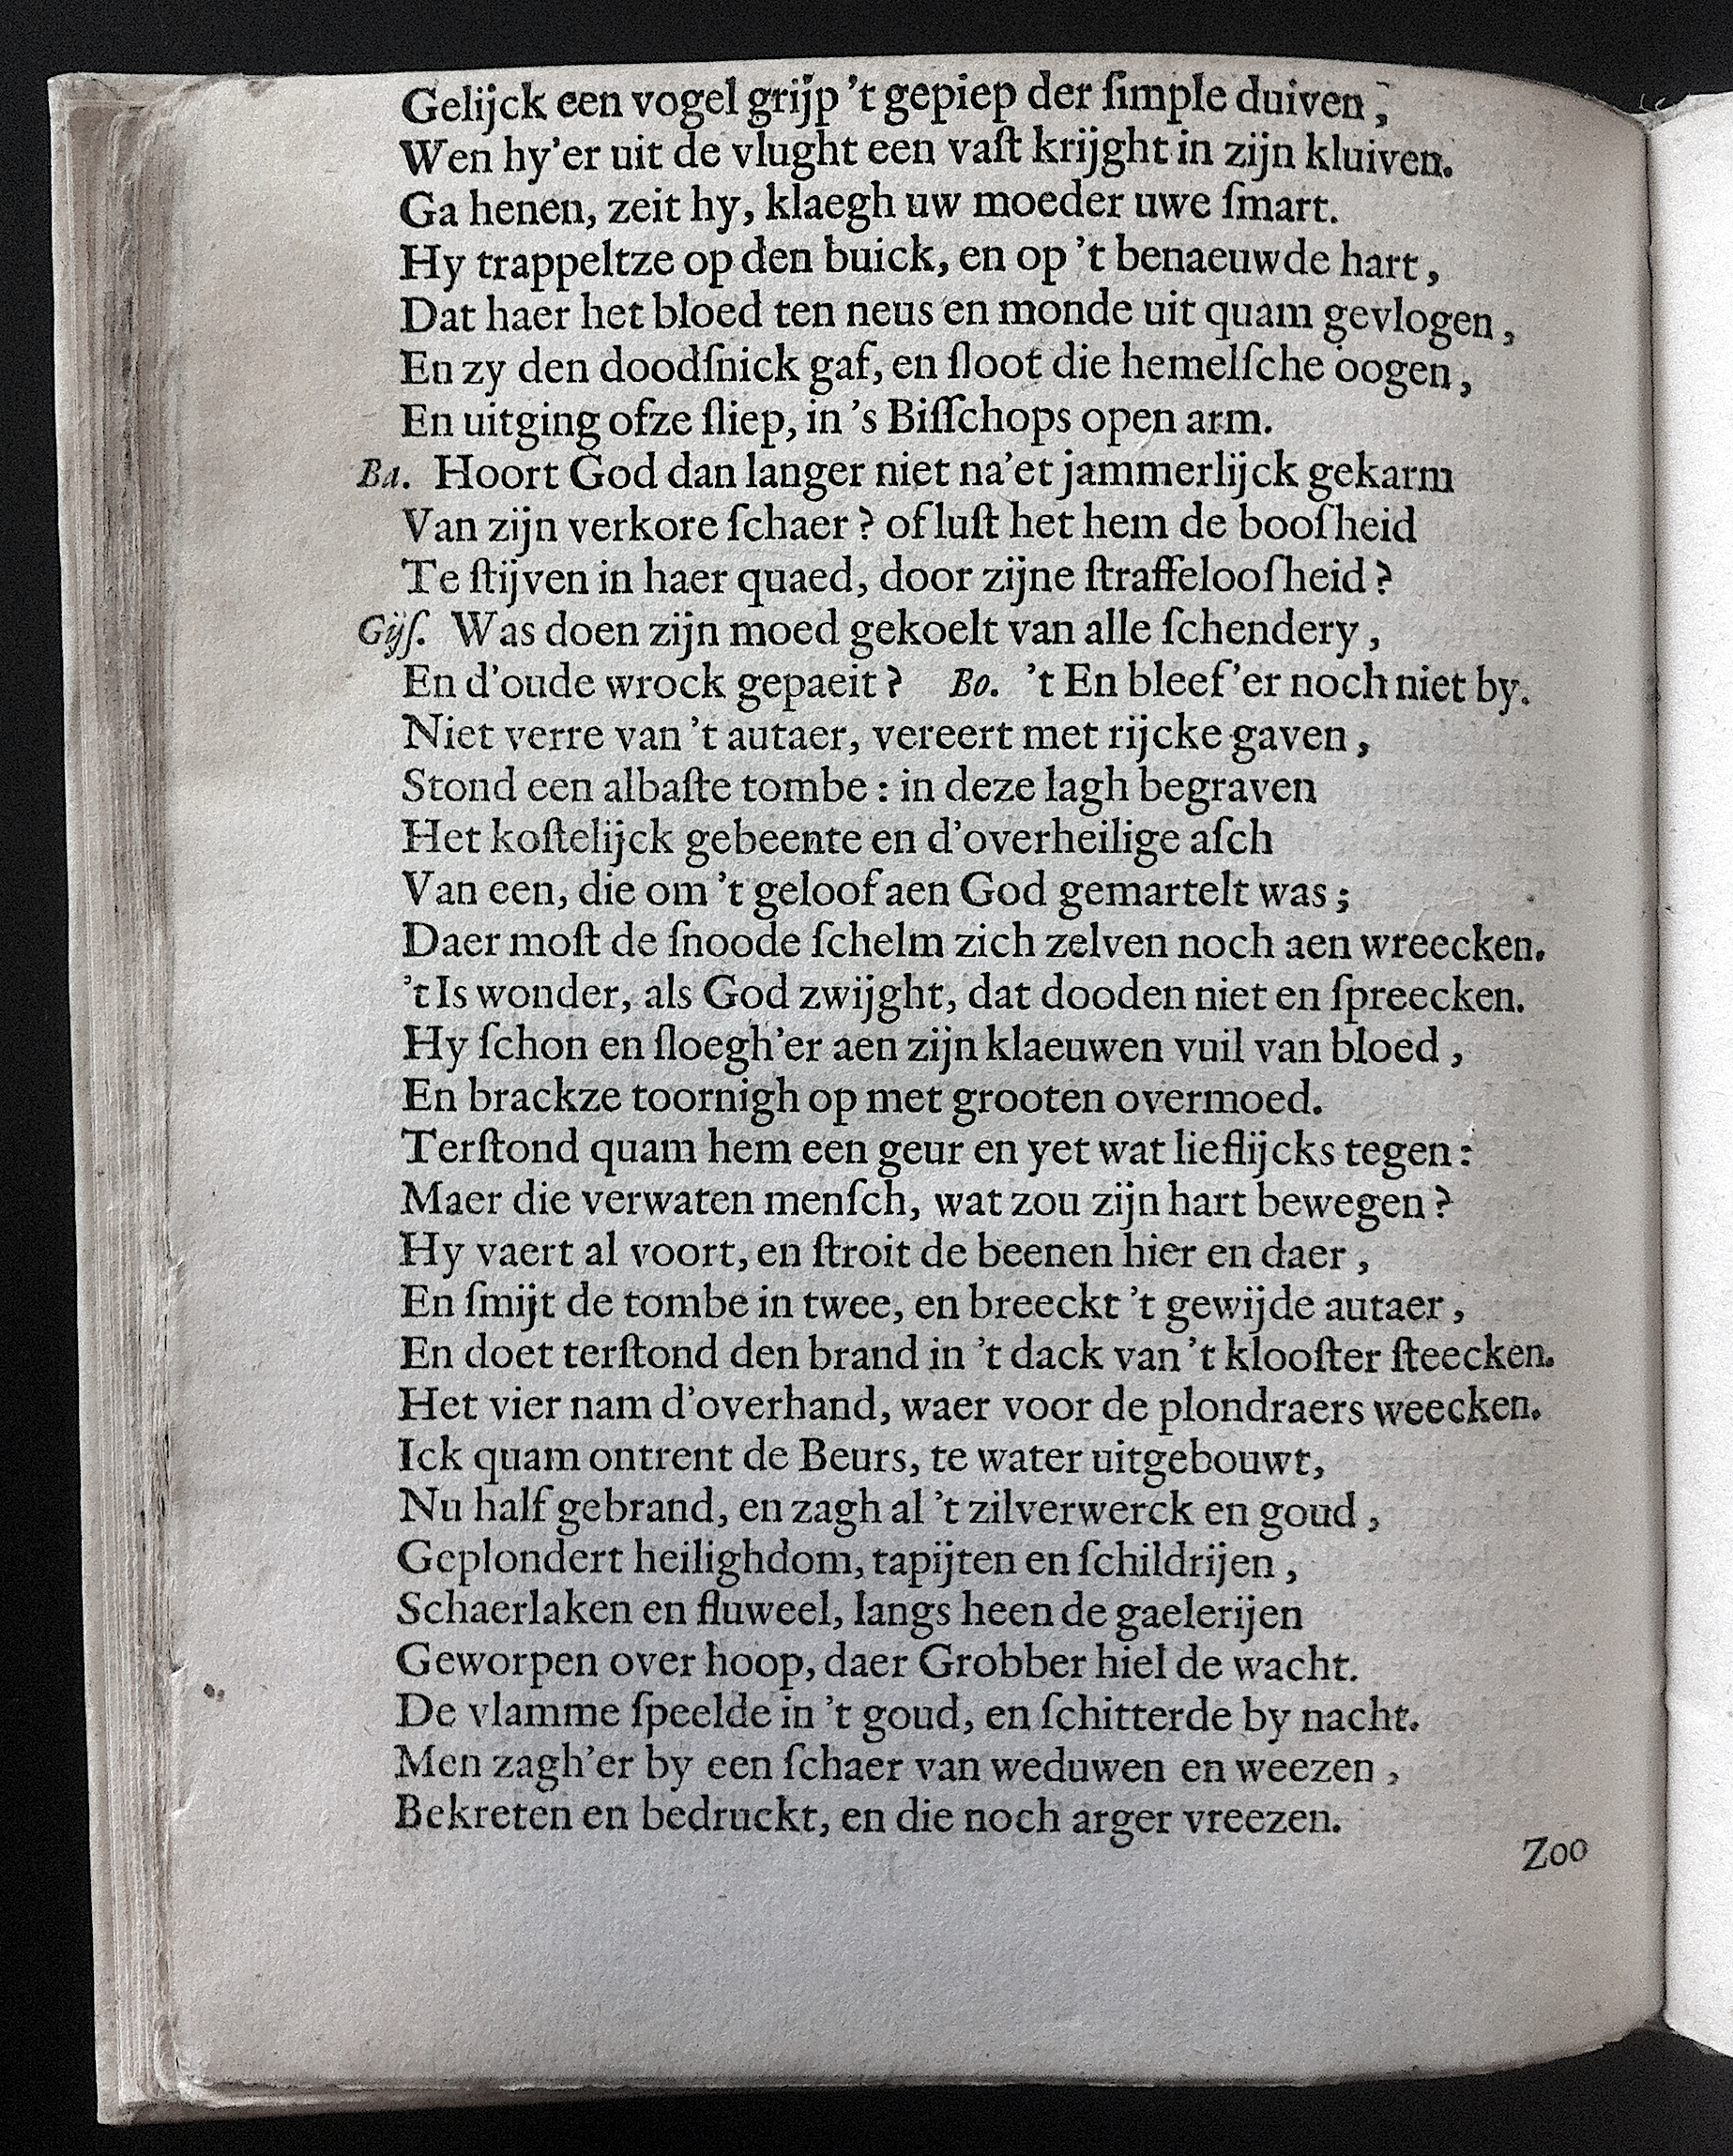 Gelijck een vogel grijp 't gepiep der ſimple duiven,
Wen hy'er uit de vlught een vaſt krijght in zijn kluiven.
Ga henen, zeit hy, klaegh uw moeder uwe ſmart.
Hy trappeltze op den buick, en op 't benaeuwde hart,
Dat haer het bloed ten neus en monde uit quam gevlogen,
En zy den doodſnick gaf, en ſloot die hemelſche oogen,
En uitging ofze ſliep, in 's Biſſchops open arm.
Ba. Hoort God dan langer niet na'et jammerlijck gekarm
Van zijn verkore ſchaer? of luſt het hem de booſheid
Te ſtijven in haer quaed, door zijne ſtraffelooſheid?
Gijſ. Was doen zijn moed gekoelt van alle ſchendery,
En d'oude wrock gepaeit? Bo. 't En bleef'er noch niet by.
Niet verre van 't autaer, vereert met rijcke gaven,
Stond een albaſte tombe: in deze lagh begraven
Het koſtelijck gebeente en d'overheilige aſch
Van een, die om 't geloof aen God gemartelt was;
Daer moſt de ſnoode ſchelm zich zelven noch aen wreecken.
't Is wonder, als God zwijght, dat dooden niet en ſpreecken.
Hy ſchon en ſloegh'er aen zijn klaeuwen vuil van bloed,
En brackze toornigh op met grooten overmoed.
Terſtond quam hem een geur en yet wat lieflijcks tegen:
Maer die verwaten menſch, wat zou zijn hart bewegen?
Hy vaert al voort, en ſtroit de beenen hier en daer,
En ſmijt de tombe in twee, en breeckt 't gewijde autaer,
En doet terſtond den brand in 't dack van 't klooſter ſteecken.
Het vier nam d'overhand, waer voor de plondraers weecken.
Ick quam ontrent de Beurs, te water uitgebouwt,
Nu half gebrand, en zagh al 't zilverwerck en goud,
Geplondert heilighdom, tapijten en ſchildrijen,
Schaerlaken en fluweel, langs heen de gaelerijen
Geworpen over hoop, daer Grobber hiel de wacht.
De vlamme ſpeelde in 't goud, en ſchitterde by nacht.
Men zagh'er by een ſchaer van weduwen en weezen,
Bekreten en bedruckt, en die noch arger vreezen.
Zoo